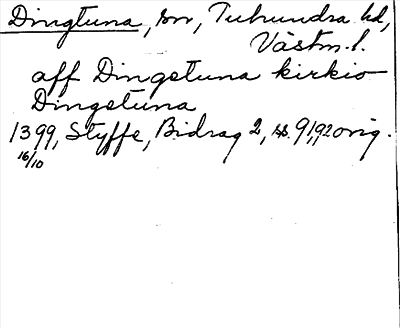 Dingtuna, sn, Tuhundra hd,
Västm. l.
aff Dingstuna kirkio
Dingstuna
1399, Styffe, Bidrag 2, ss. 91, 92 orig.
16/10